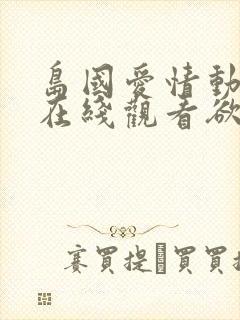 島國愛情動
在綫觀看欲
賽買提 買買提